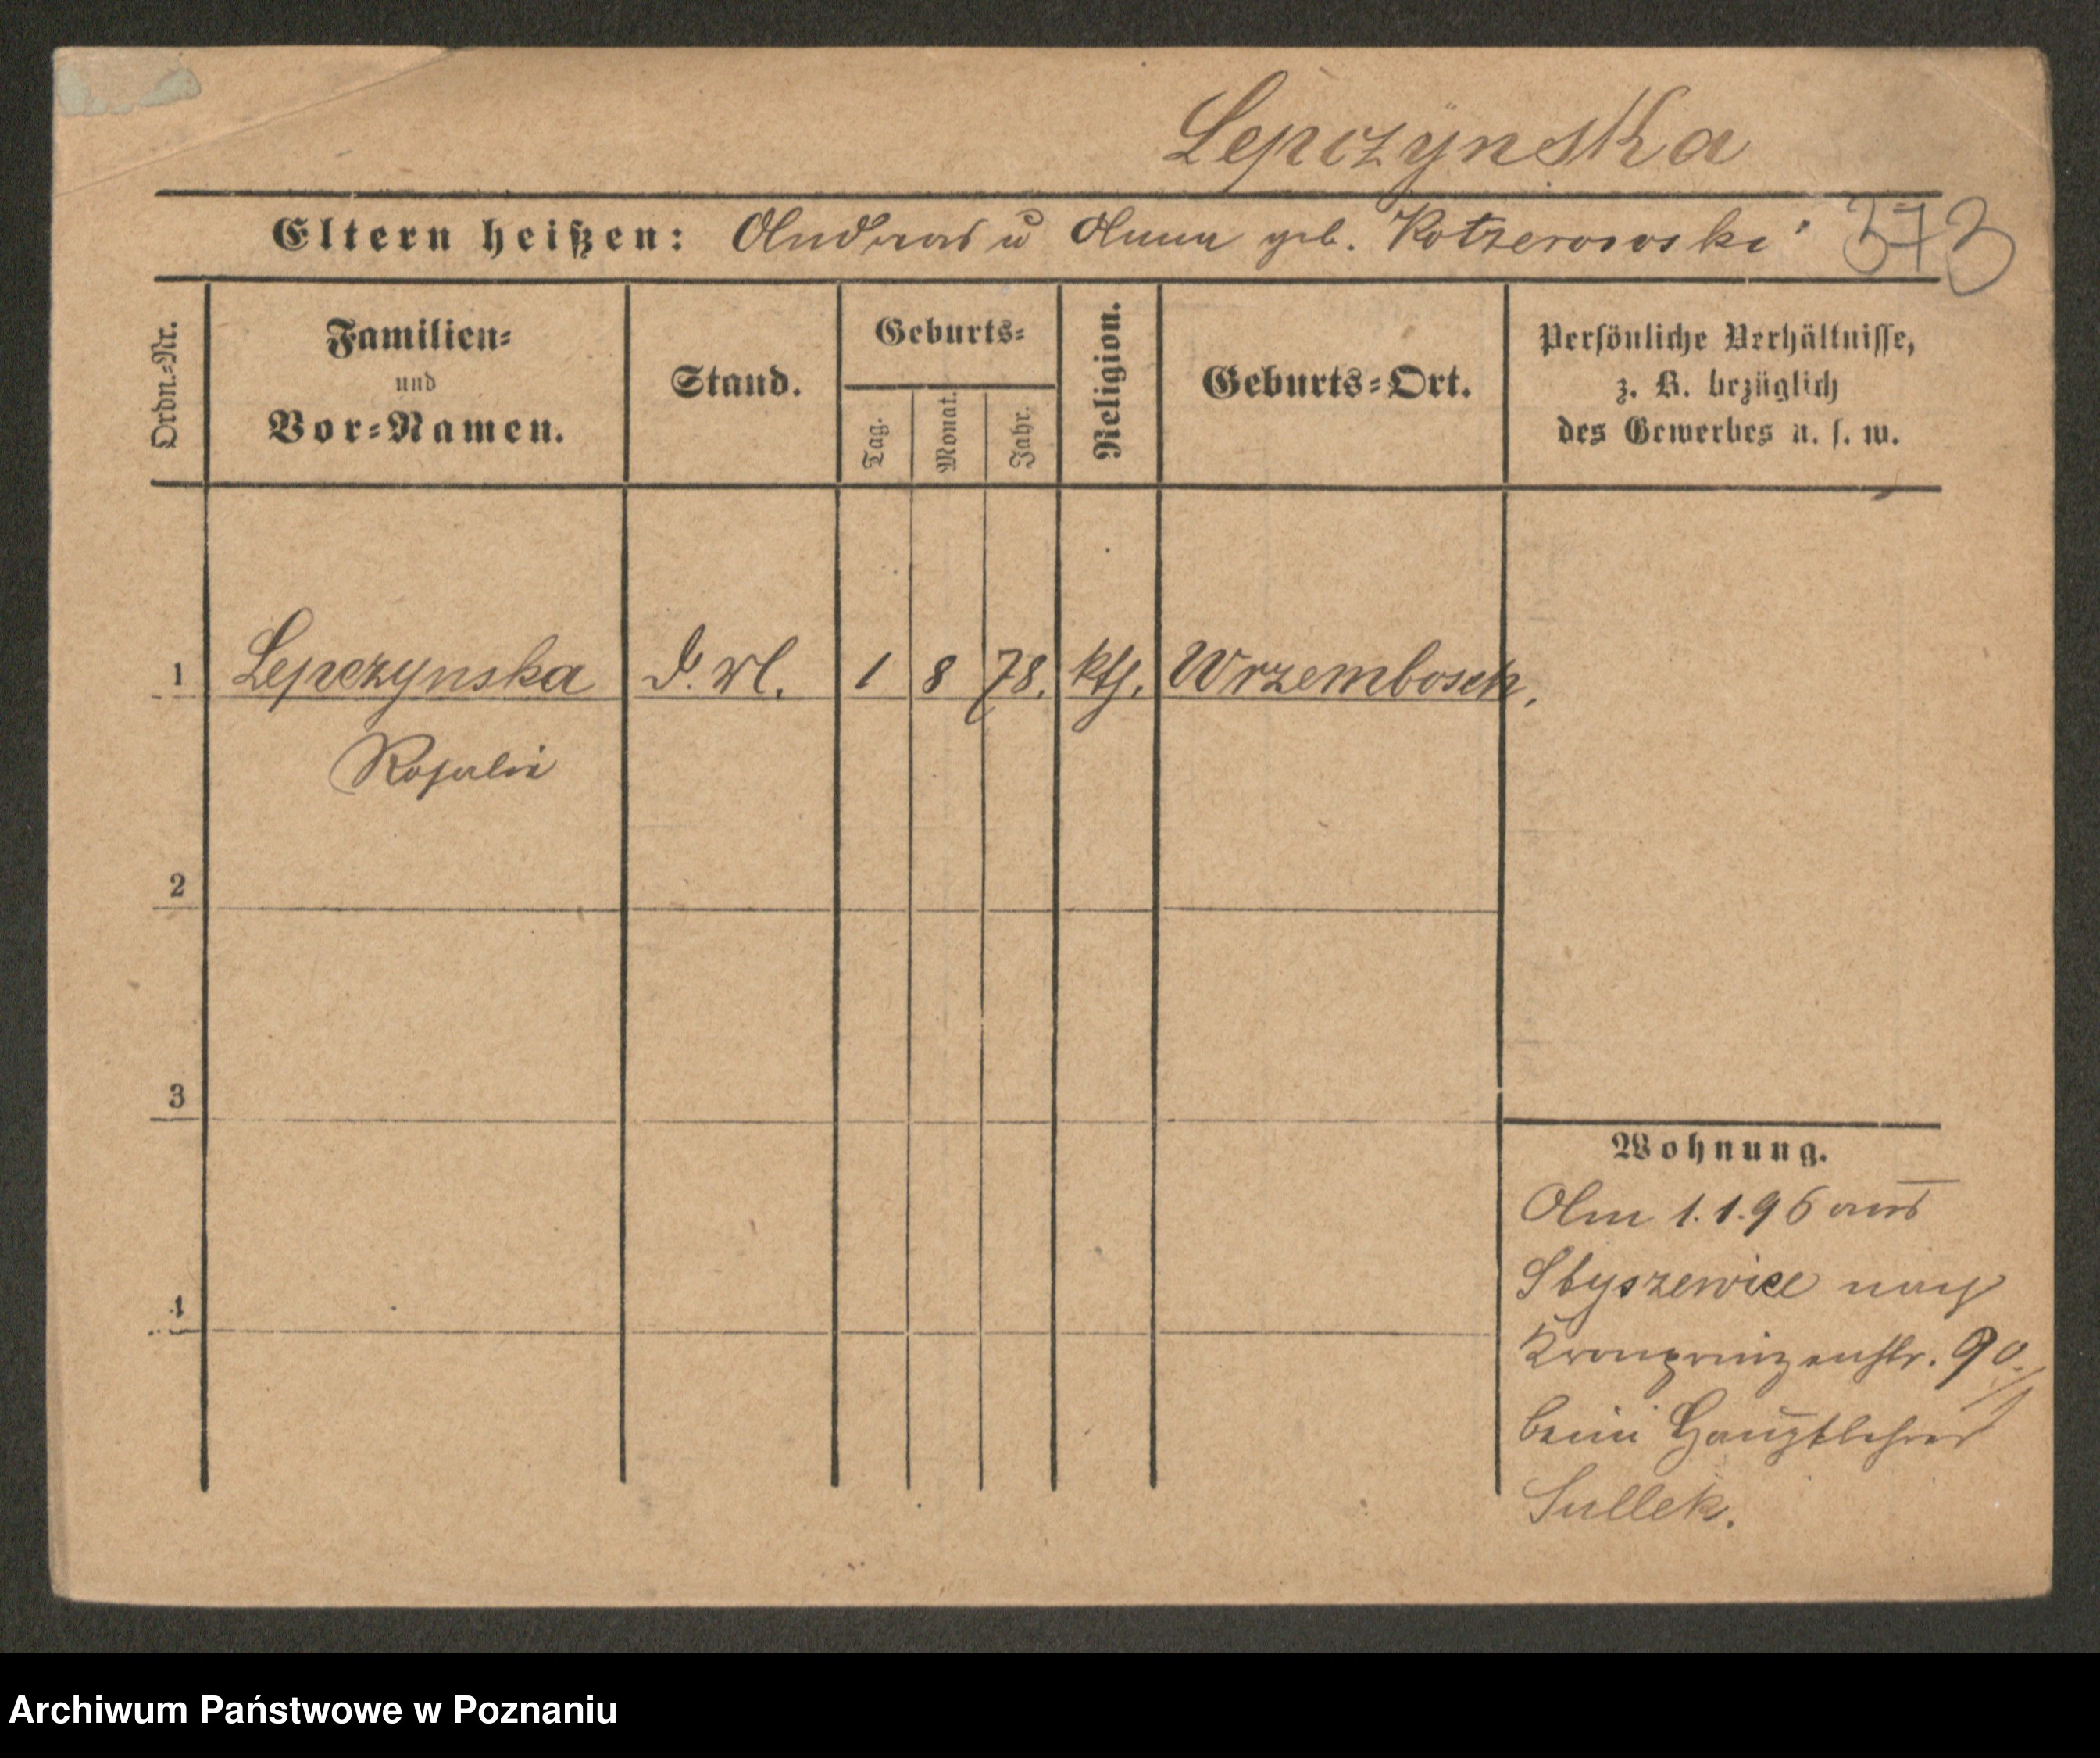 Lepczynska
Eltern heißen: Andreas u Anna geb. Kotzerowoski
373
Ordn.-Nr.
Familien-
und
Vor-Namen.
Stand.
Geburts-
Tag.
Monat.
Jahr.
Religion.
Geburts-Ort.
Persönliche Verhältnisse,
z. B. bezüglich
des Gewerbes u. s. w.
1 Lepczynska 1 8 78. kth. Wrzembosch.
Rosalie
2
3
4
Wohnung.
Am 1.1.96 aus
nach
Kronprinzenstr. 90.
beim Hauptlehrer
Sullek.
Archiwum Państwowe w Poznaniu